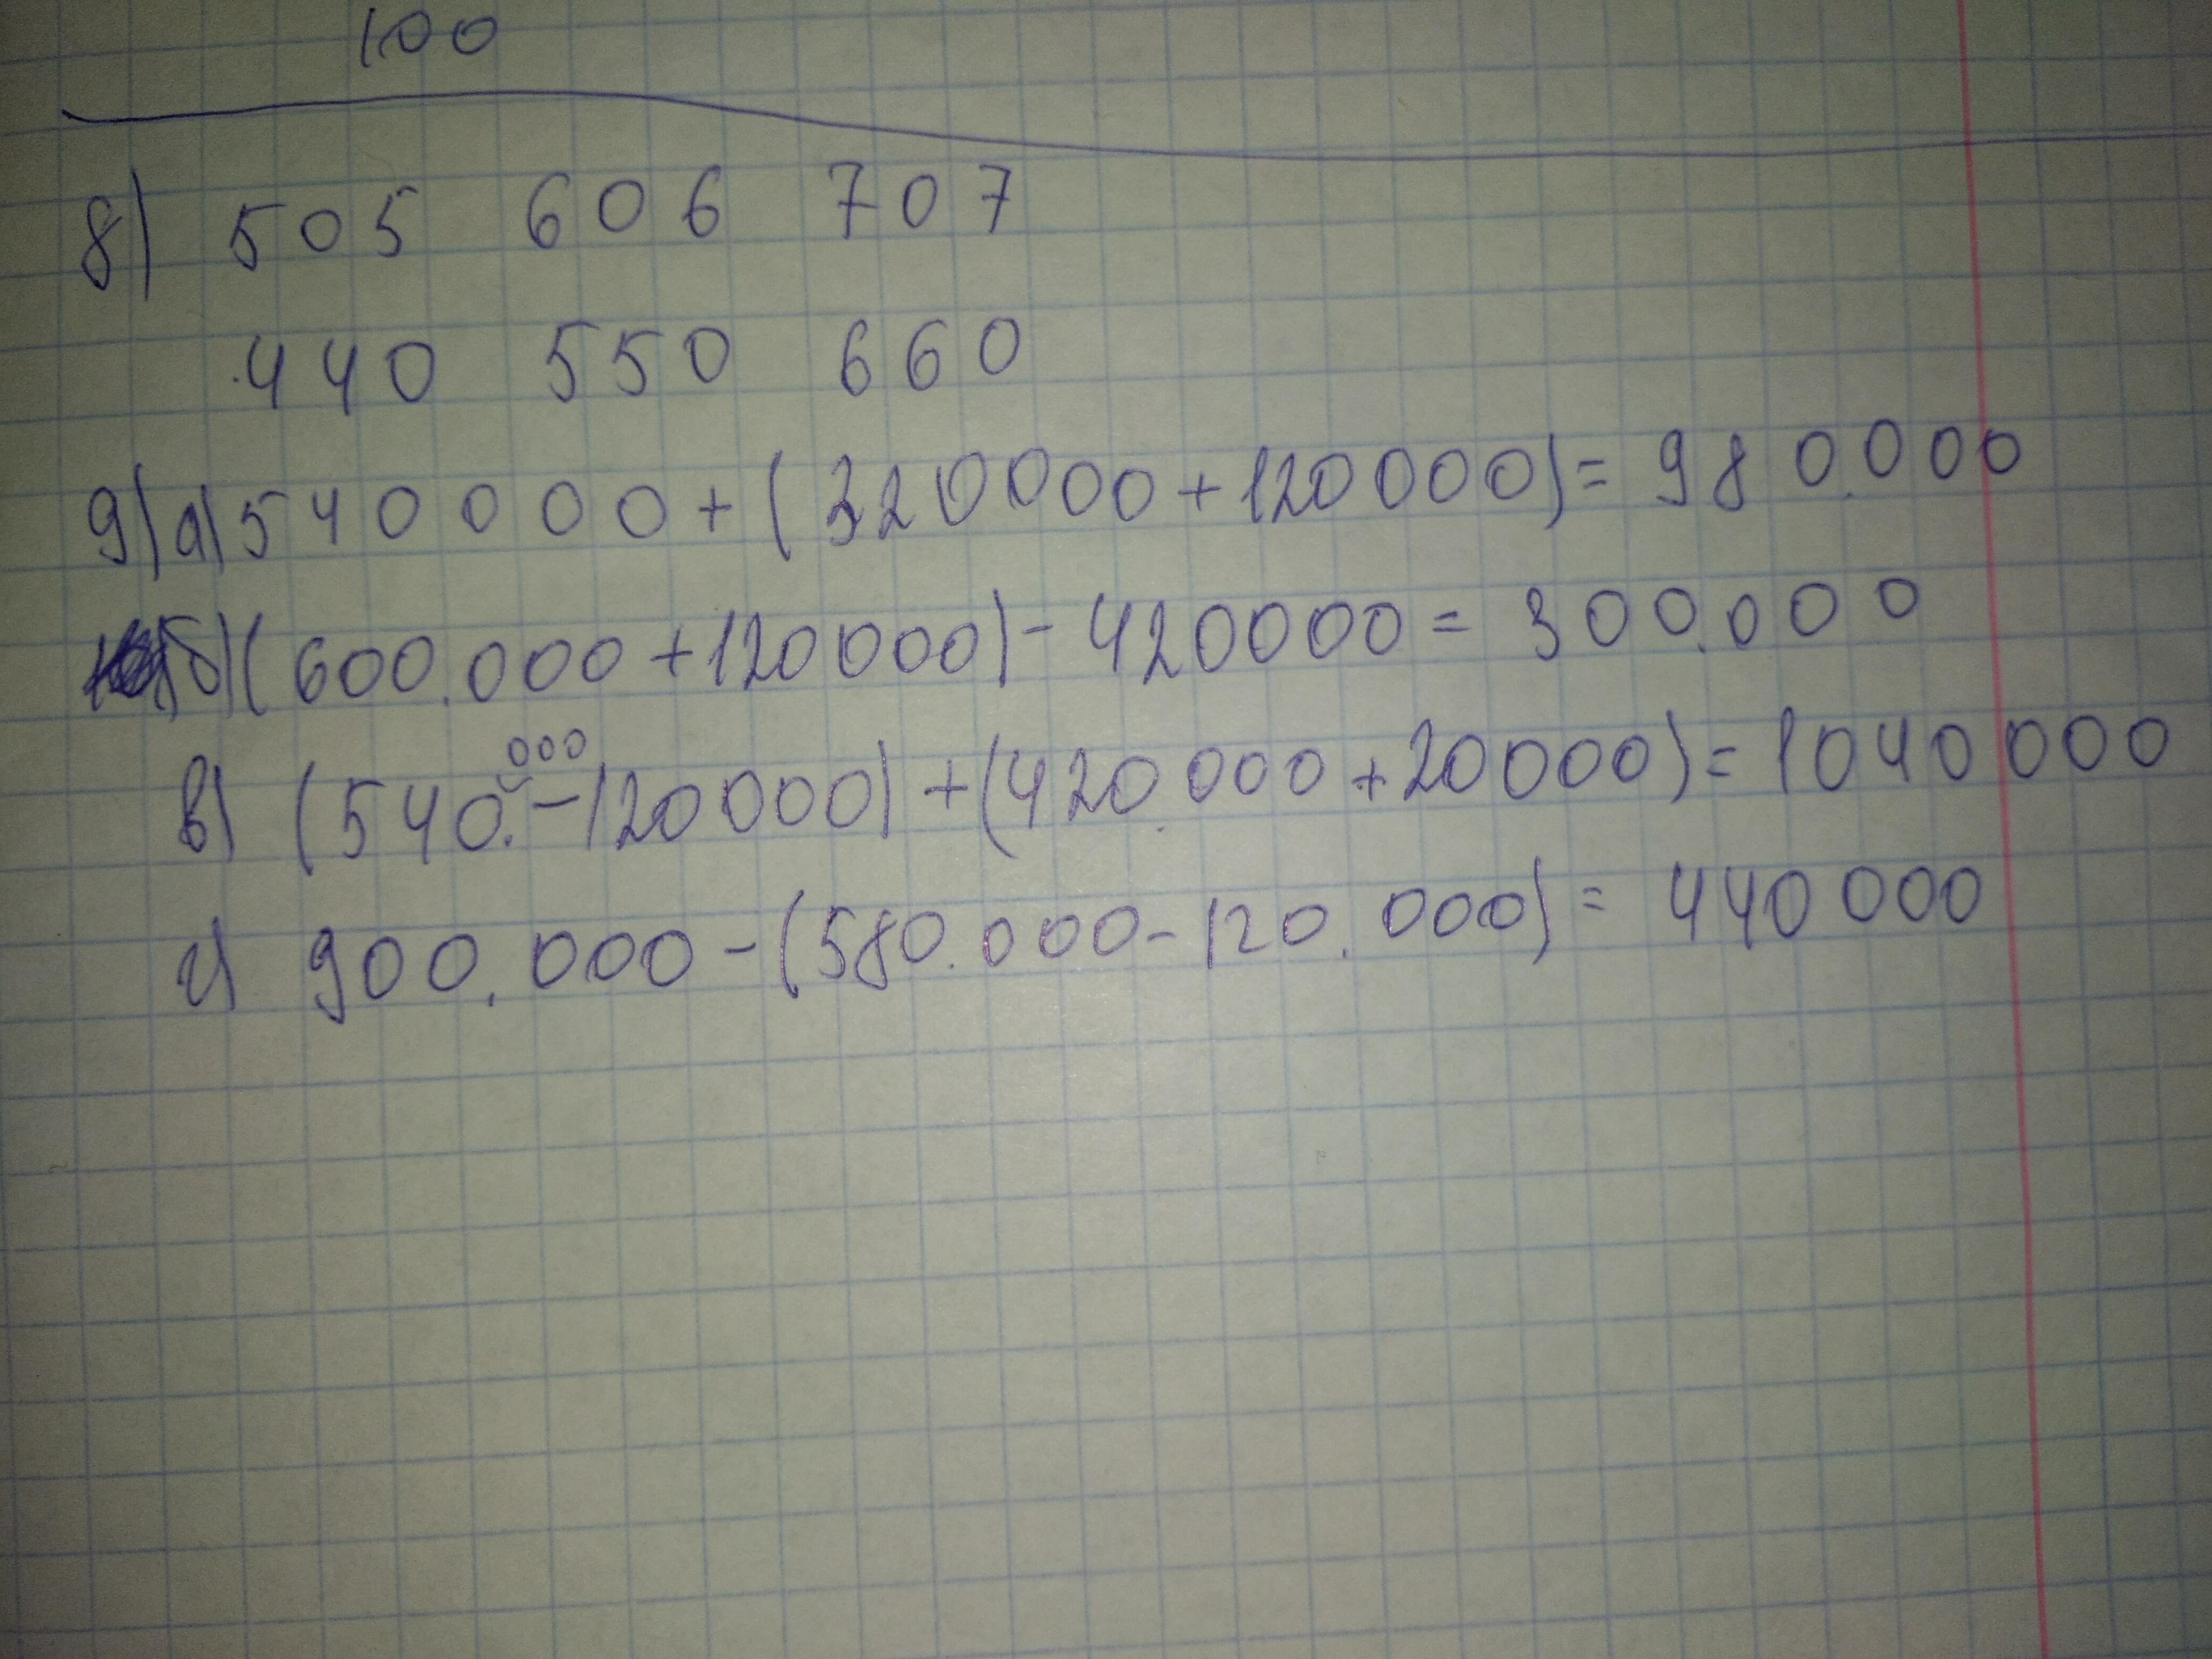 100
8) 505 606 707
440 550 660
9) а) 540000 + (320000 + 120000) = 980.000
б) (600.000 + 120000) - 420000 = 300.000
в) (540.000 - 120000) + (420.000 + 20000) = 1040000
г) 900.000 - (580.000 - 120.000) = 440000